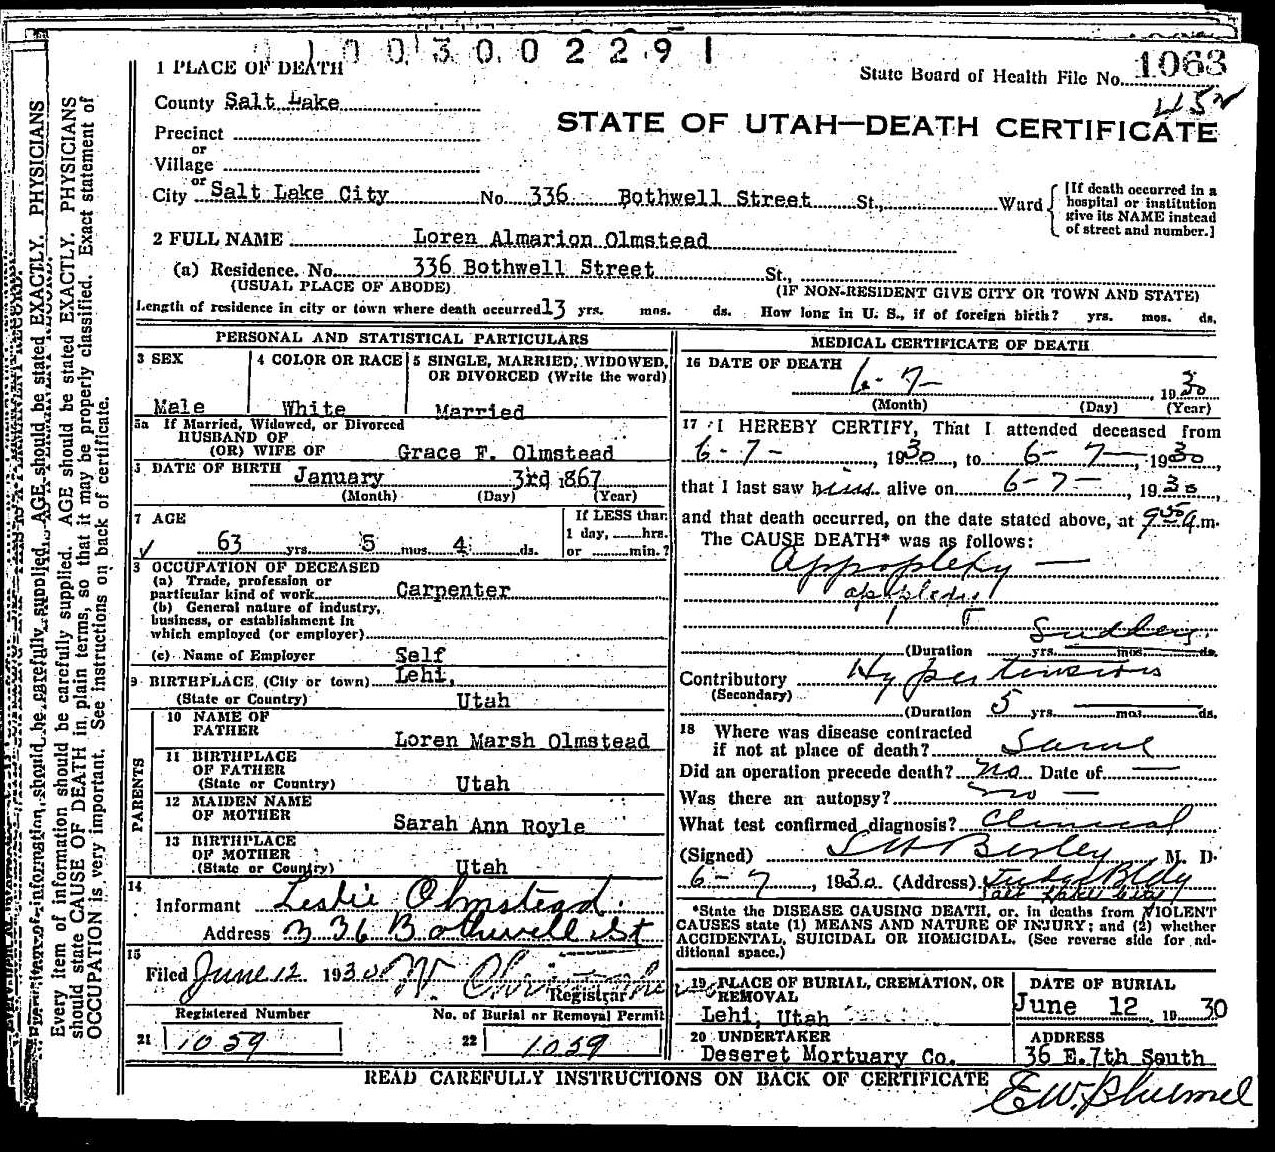 01003002291
1 PLACE OF DEATH
State Board of Health File No. 1063
County Salt Lake
STATE OF UTAH—DEATH CERTIFICATE
Precinct
or
Village
or
City Salt Lake City No. 336 Bothwell Street St., Ward
[If death occurred in a
hospital or institution
give its NAME instead
of street and number.]
2 FULL NAME Loren Almarion Olmstead
(a) Residence. No. 336 Bothwell Street St.,
(USUAL PLACE OF ABODE) (IF NON-RESIDENT GIVE CITY OR TOWN AND STATE)
Length of residence in city or town where death occurred 13 yrs. mos. ds. How long in U. S., if of foreign birth? yrs. mos. ds.
PERSONAL AND STATISTICAL PARTICULARS
3 SEX
Male
4 COLOR OR RACE
White
5 SINGLE, MARRIED, WIDOWED,
OR DIVORCED (Write the word)
Married
5a If Married, Widowed, or Divorced
HUSBAND OF
(OR) WIFE OF Grace F. Olmstead
DATE OF BIRTH January 3rd 1867
(Month) (Day) (Year)
7 AGE
63 yrs. 5 mos. 4 ds.
If LESS than
1 day, hrs.
or min.?
OCCUPATION OF DECEASED
(a) Trade, profession or
particular kind of work Carpenter
(b) General nature of industry,
business, or establishment in
which employed (or employer)
(c) Name of Employer Self
9 BIRTHPLACE (City or town) Lehi,
(State or Country) Utah
PARENTS
10 NAME OF
FATHER Loren Marsh Olmstead
11 BIRTHPLACE
OF FATHER
(State or Country) Utah
12 MAIDEN NAME
OF MOTHER Sarah Ann Royle
13 BIRTHPLACE
OF MOTHER
(State or Country) Utah
14
Informant Leslie Olmstead.
Address 336 Bothwell St
15
Filed June 12 1930 W.
Registrar
Registered Number
21 1059
No. of Burial or Removal Permit
22 1059
MEDICAL CERTIFICATE OF DEATH
16 DATE OF DEATH 6-7- , 1930
(Month) (Day) (Year)
17 I HEREBY CERTIFY, That I attended deceased from
6-7- , 1930, to 6-7-, 1930,
that I last saw him alive on 6-7-, 1930,
and that death occurred, on the date stated above, at 9 50 a.m.
The CAUSE DEATH* was as follows:
Appoplexy —
(Duration yrs. mos. ds.
Contributory Hypertension
(Secondary)
(Duration 5 yrs. mos. ds.
18 Where was disease contracted
if not at place of death? Same
Did an operation precede death? No Date of —
Was there an autopsy? no —
What test confirmed diagnosis? Clinical
(Signed) M. D.
6-7, 1930 (Address) Judge Bldg
Salt Lake City
*State the DISEASE CAUSING DEATH, or, in deaths from VIOLENT
CAUSES state (1) MEANS AND NATURE OF INJURY; and (2) whether
ACCIDENTAL, SUICIDAL OR HOMICIDAL. (See reverse side for ad-
ditional space.)
19 PLACE OF BURIAL, CREMATION, OR
REMOVAL
Lehi, Utah
DATE OF BURIAL
June 12, 1930
20 UNDERTAKER
Deseret Mortuary Co.
ADDRESS
36 E. 7th South
READ CAREFULLY INSTRUCTIONS ON BACK OF CERTIFICATE
Every item of information should be carefully supplied. AGE should be stated EXACTLY. PHYSICIANS
should state CAUSE OF DEATH in plain terms, so that it may be properly classified. Exact statement of
OCCUPATION is very important. See instructions on back of certificate.